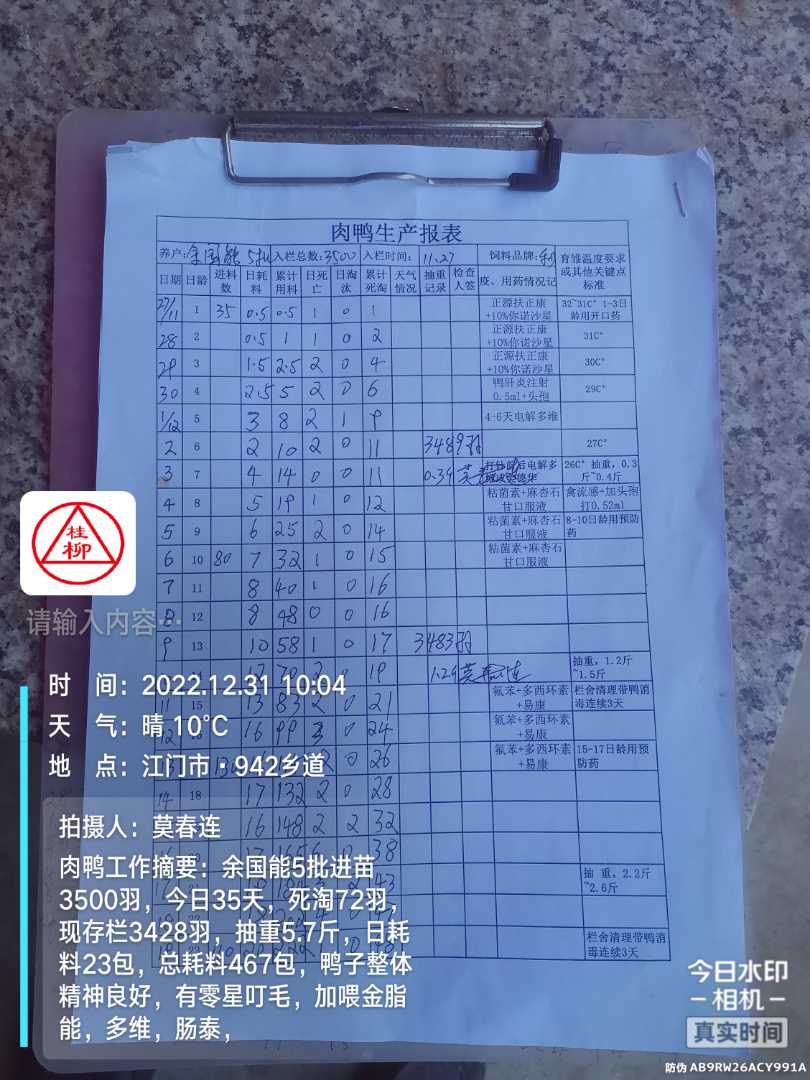 肉鸭生产报表
养户:余国能 5批 入栏总数:3500 入栏时间: 11.27 饲料品牌: 育雏温度要求或其他关键点标准
日期 日龄 进料数 日耗料 累计用料 日死亡 日淘汰 累计死淘 天气情况 抽重记录 检查人签 疫、用药情况记
27/11 1 35 0.5 0.5 1 0 1 正源扶正康+10%你诺沙星 32~31C° 1-3日龄用开口药
28 2 0.5 1 1 0 2 正源扶正康+10%你诺沙星 31C°
29 3 1.5 2.5 2 0 4 正源扶正康+10%你诺沙星 30C°
30 4 2.5 5 2 0 6 鸭肝炎注射0.5ml+头孢 29C°
1/12 5 3 8 2 1 9 4-6天电解多维
2 6 2 10 2 0 11 3489羽 27C°
3 7 4 14 0 0 11 0.39 莫春连 26C° 抽重,0.3斤~0.4斤
4 8 5 19 1 0 12 粘菌素+麻杏石甘口服液 禽流感+加头孢打0.52ml
5 9 6 25 2 0 14 粘菌素+麻杏石甘口服液 8-10日龄用预防药
6 10 80 7 32 1 0 15 粘菌素+麻杏石甘口服液
7 11 8 40 1 0 16
8 12 8 48 0 0 16
9 13 10 58 1 0 17 3483羽
19 1.29 莫春连 抽重,1.2斤~1.5斤
11 15 13 83 2 0 21 氟苯+多西环素+易康 栏舍清理带鸭消毒连续3天
16 99 3 0 24 氟苯+多西环素+易康
0 26 氟苯+多西环素+易康 15-17日龄用预防药
14 18 17 132 2 0 28
16 148 2 2 32
38
43 抽重,2.2斤~2.6斤
栏舍清理带鸭消毒连续3天
桂柳
请输入内容…
时 间: 2022.12.31 10:04
天 气: 晴 10℃
地 点: 江门市·942乡道
拍摄人: 莫春连
肉鸭工作摘要: 余国能5批进苗
3500羽,今日35天,死淘72羽,
现存栏3428羽,抽重5.7斤,日耗
料23包,总耗料467包,鸭子整体
精神良好,有零星叮毛,加喂金脂
能,多维,肠泰,
今日水印
-相机-
真实时间
防伪 AB9RW26ACY991A